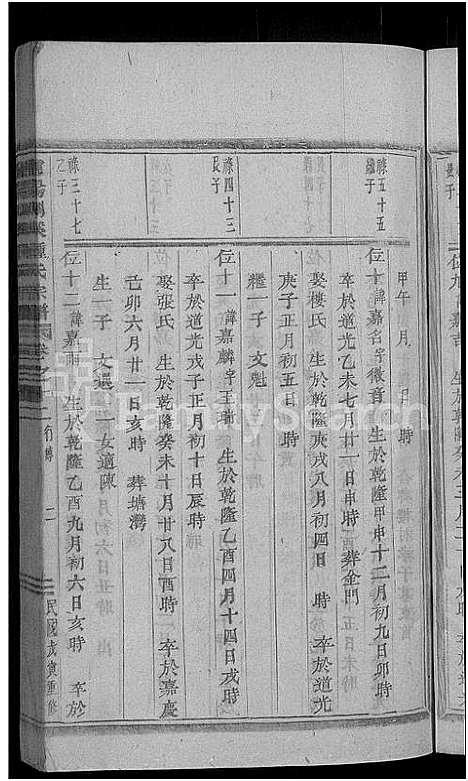 甲午　月　日　時
祿五十五
繼子
位十　諱嘉名字徵音　生於乾隆甲申十二月初九日卯時
卒於道光乙未七月廿一日申時　葬金門
娶樓氏　生於乾隆庚戌八月初四日　時　卒於道光
庚子正月初五日　時
繼一子　文魁
祿四十三
長子
位十一　諱嘉麟字玉瑞　生於乾隆乙酉四月十四日戌時
卒於道光戊子正月初十日辰時
娶張氏　生於乾隆癸未十月廿八日酉時　卒於嘉慶
己卯六月廿一日亥時　葬塘灣
生一子　文選　一女適陳
祿三十七
之子
位十二　諱嘉雨　生於乾隆乙酉九月初六日亥時　卒於
氏宗譜　卷之　行傳　二　民國戊寅重修
FamilySearch